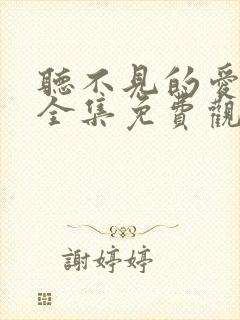 聽不見的愛
全集免費觀
謝婷婷